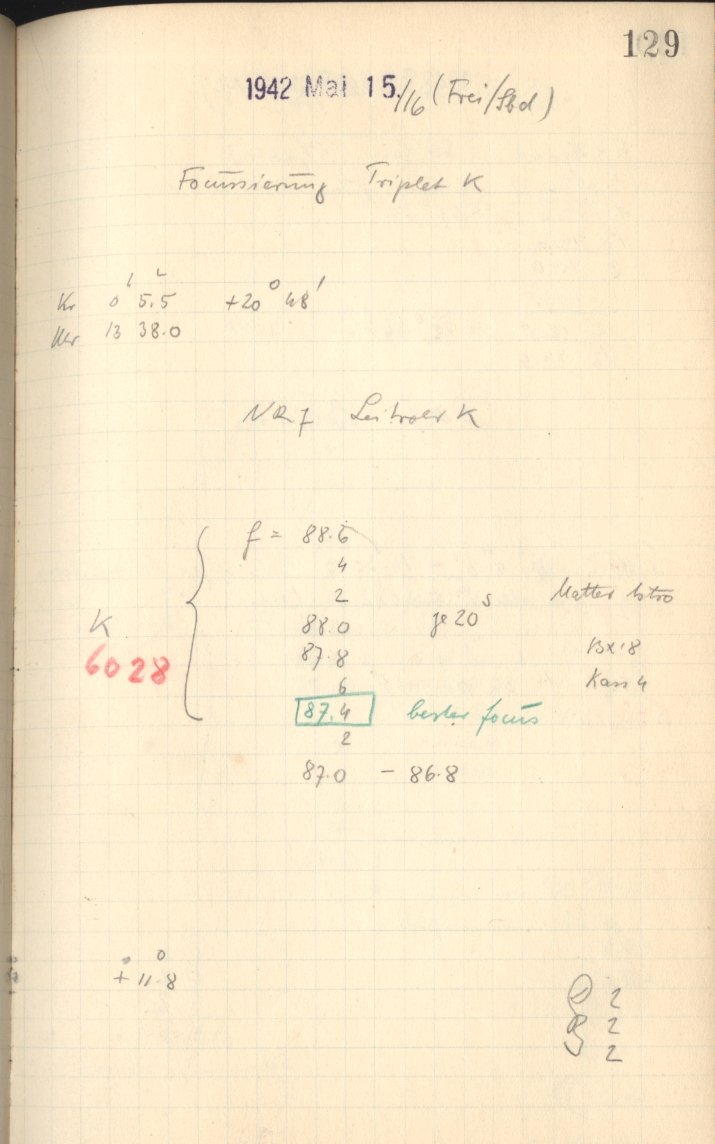 129
1942 Mai 15./16 (Frei/Sbd)
Focussierung Triplet K
h m
Kr 0 5.5 +20° 48'
Mr 13 38.0
Leitrohr K
f = 88.6
4
2 Matter Astro
K 88.0 je 20s
6028 87.8 Bx'8
6 Kass 4
87.4 bester focus
2
87.0 - 86.8
+11.8°
2
2
2